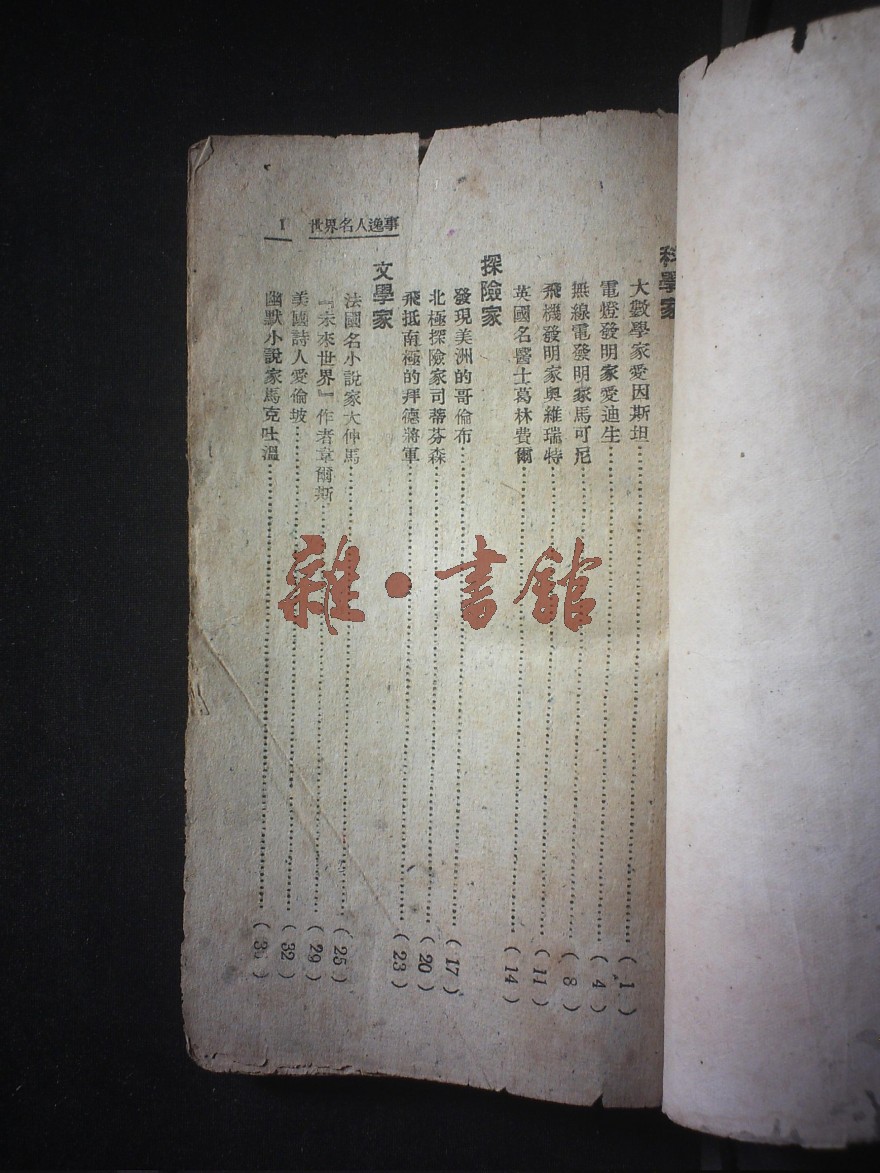 世界名人逸事
1
科學家
大數學家愛因斯坦……(1)
電燈發明家愛迪生……(4)
無線電發明家馬可尼……(8)
飛機發明家奧維瑞特……(11)
英國名醫士葛林費爾……(14)
探險家
發現美洲的哥倫布……(17)
北極探險家司蒂芬森……(20)
飛抵南極的拜德將軍……(23)
文學家
法國名小說家大仲馬……(25)
『未來世界』作者韋爾斯……(29)
美國詩人愛倫坡……(32)
幽默小說家馬克吐溫……
雜·書館